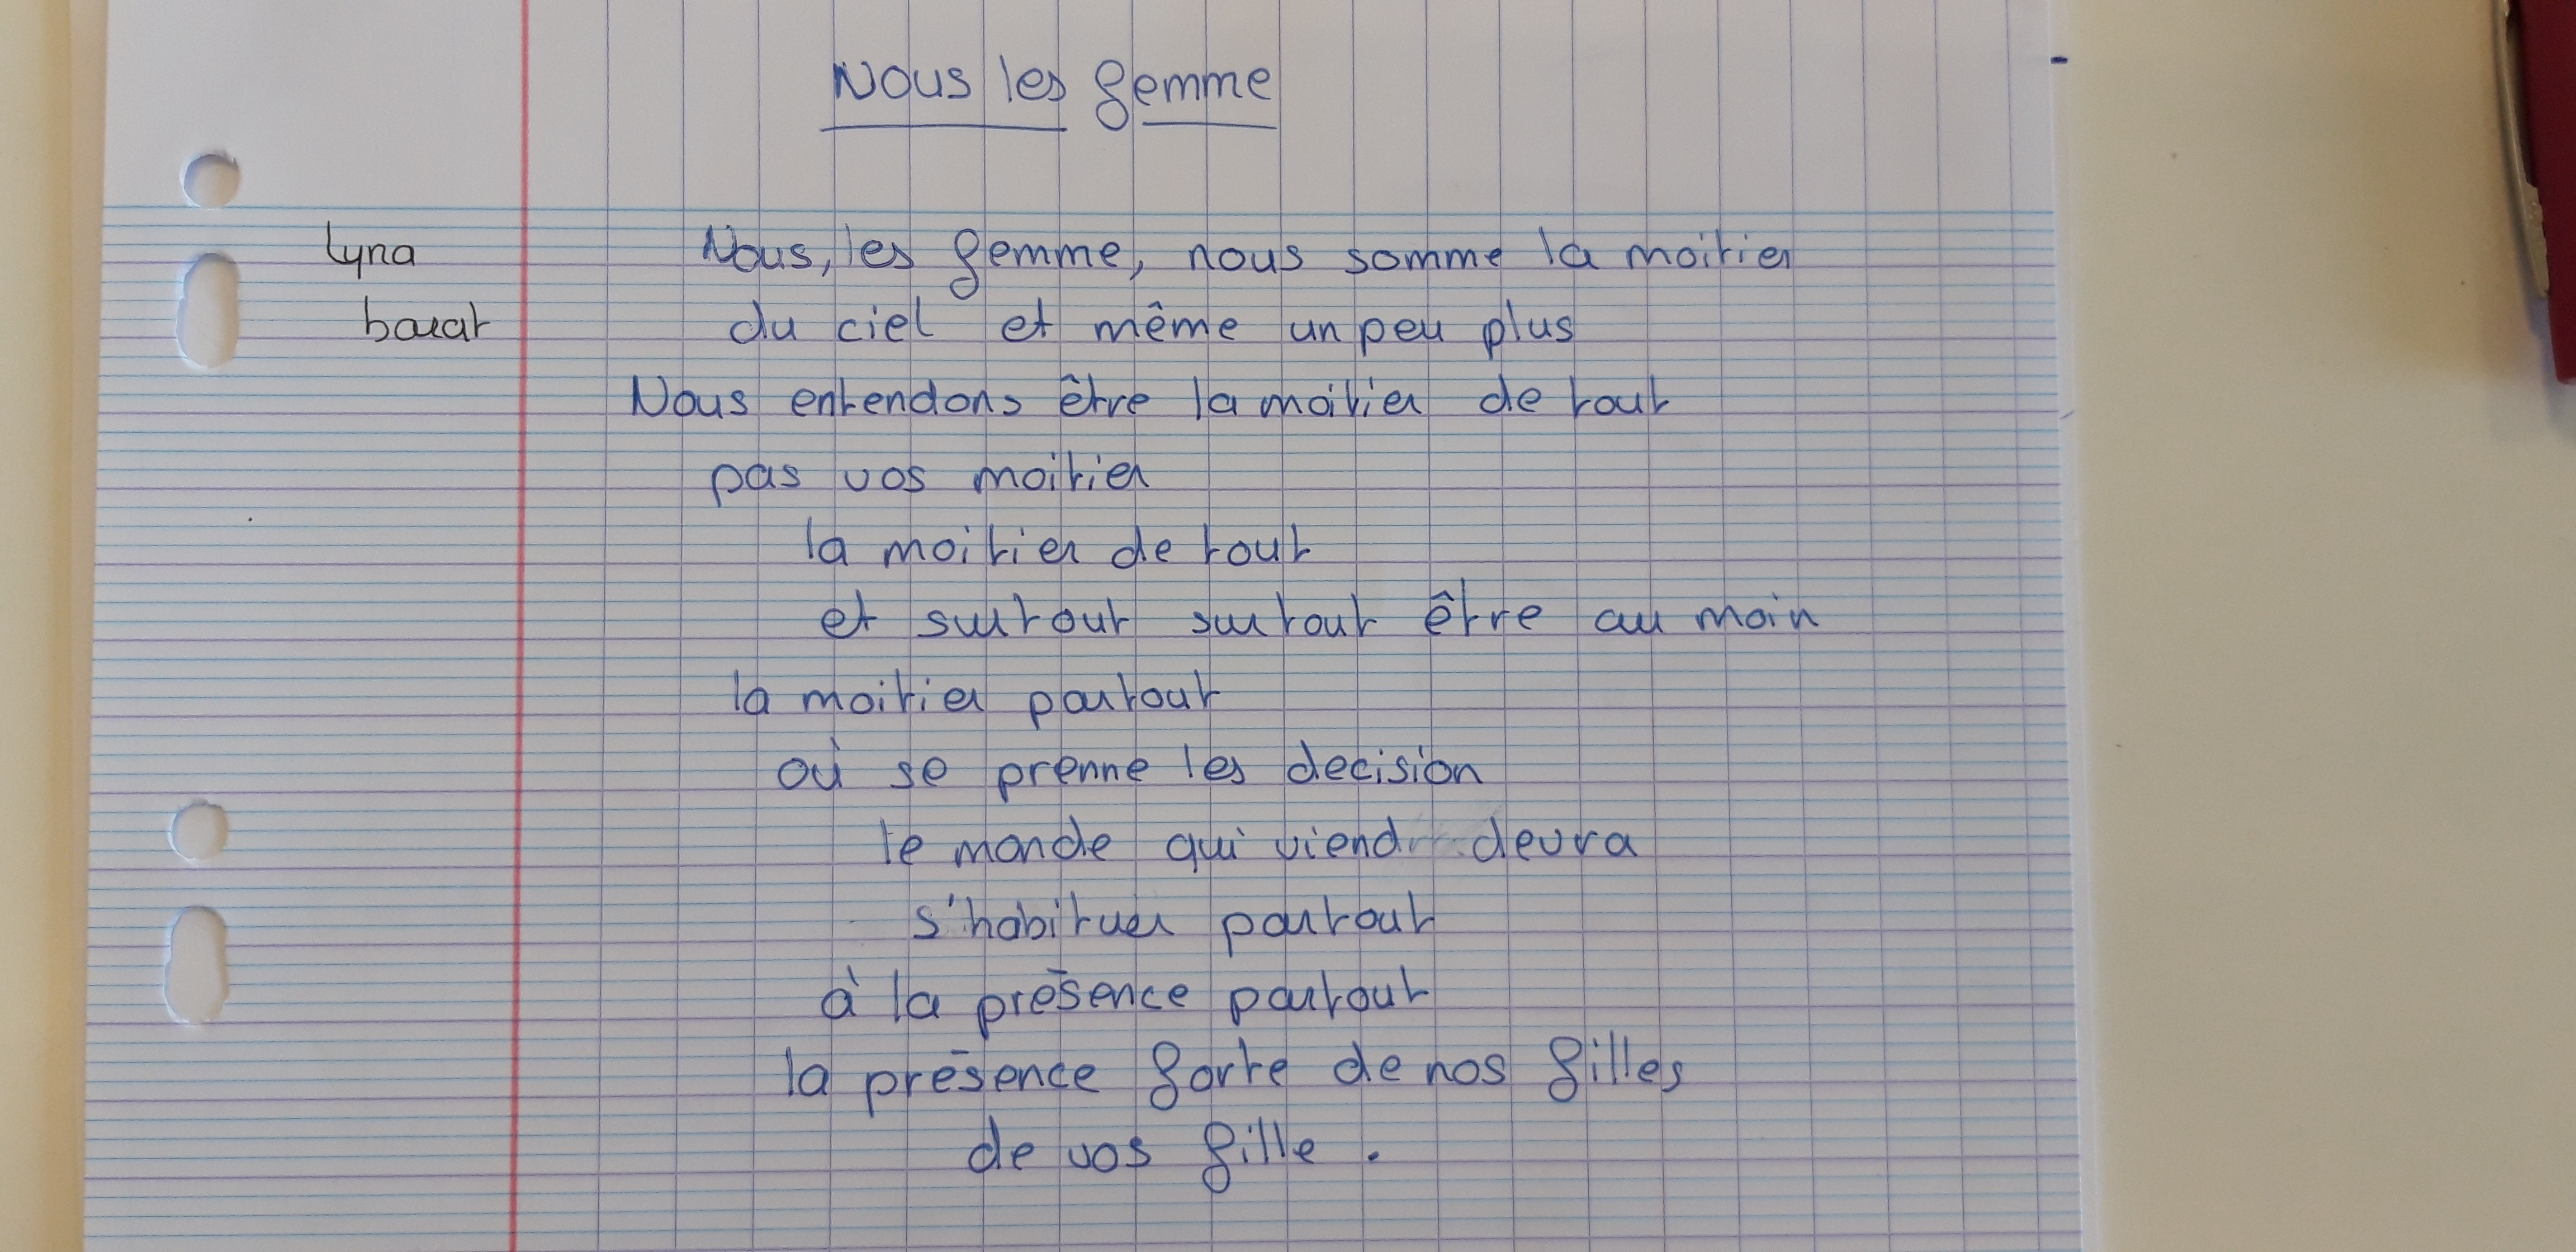 Nous les femme
Lyna
barat
Nous, les femme, nous somme la moitier
du ciel et même un peu plus
Nous entendons être la moitier de tout
pas vos moitier
la moitier de tout
et surtout surtout être au moin
la moitier partout
où se prenne les decision
le monde qui viend devra
s'habituer partout
à la présence partout
la présence forte de nos filles
de vos fille.